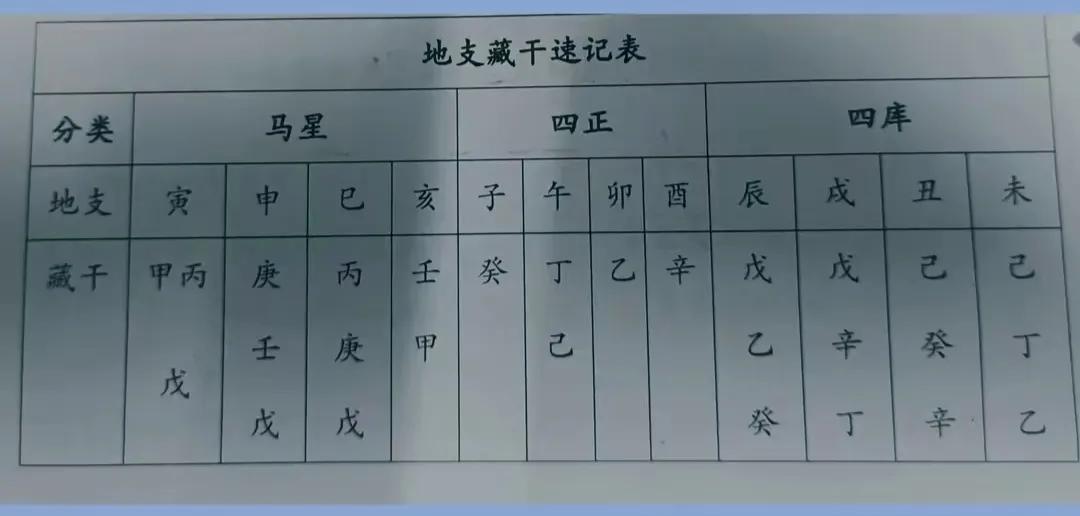 地支藏干速记表
分类 马星 四正 四库
地支 寅 申 巳 亥 子 午 卯 酉 辰 戌 丑 未
藏干 甲丙 庚 丙 壬 癸 丁 乙 辛 戊 戊 己 己
戊 壬 庚 甲 己 乙 辛 癸 丁
戊 戊 癸 丁 辛 乙